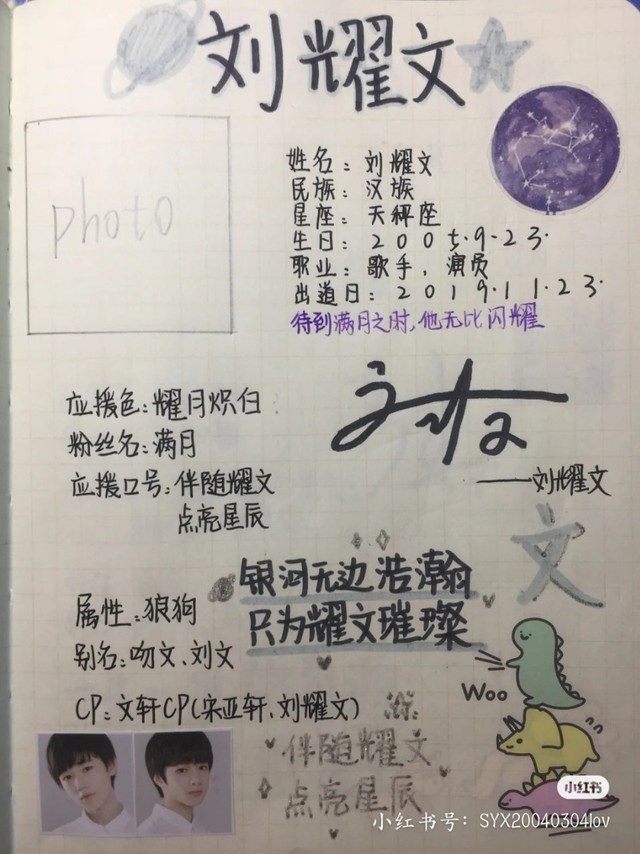 刘耀文
photo
姓名：刘耀文
民族：汉族
星座：天秤座
生日：2005.9.23.
职业：歌手、演员
出道日：2019.11.23.
待到满月之时，他无比闪耀
应援色：耀月炽白
粉丝名：满月
应援口号：伴随耀文
点亮星辰
——刘耀文
文
银河无边浩瀚
只为耀文璀璨
属性：狼狗
别名：吻文、刘文
CP：文轩CP(宋亚轩、刘耀文)
Woo
伴随耀文
点亮星辰
小红书
小红书号：SYX20040304lov